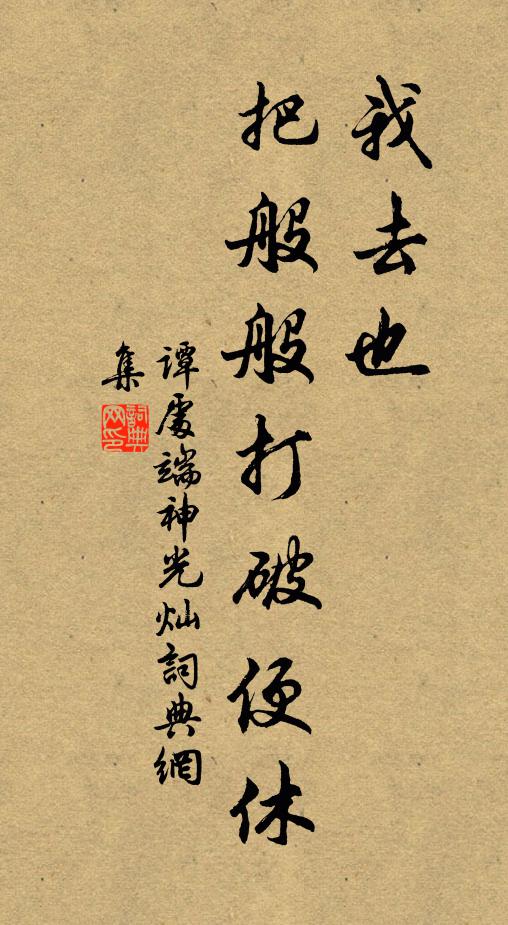 我去也
把般般打破便休
谭處端神光灿詞典網
集
詞典网印